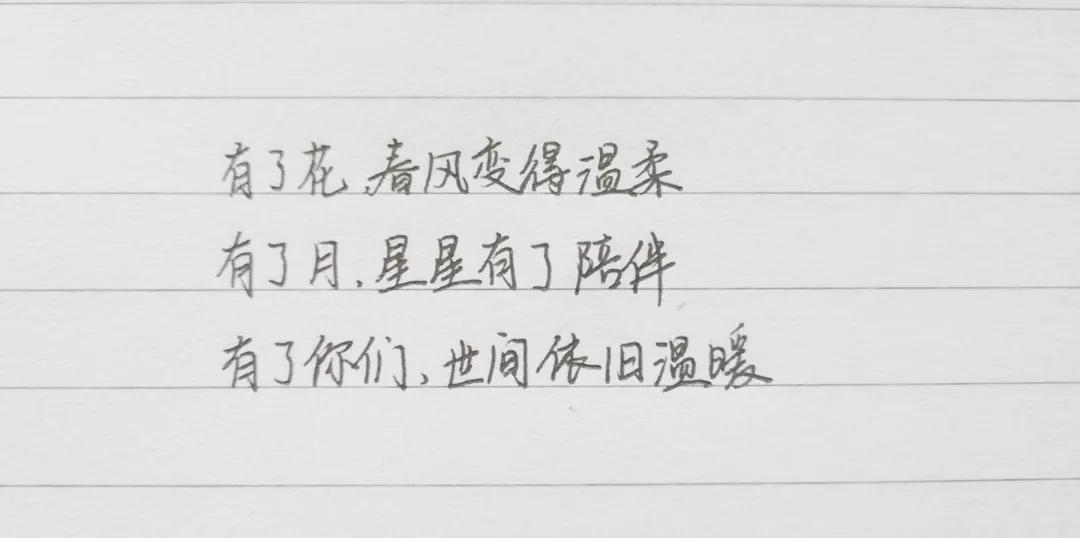 有了花,春风变得温柔
有了月,星星有了陪伴
有了你们,世间依旧温暖